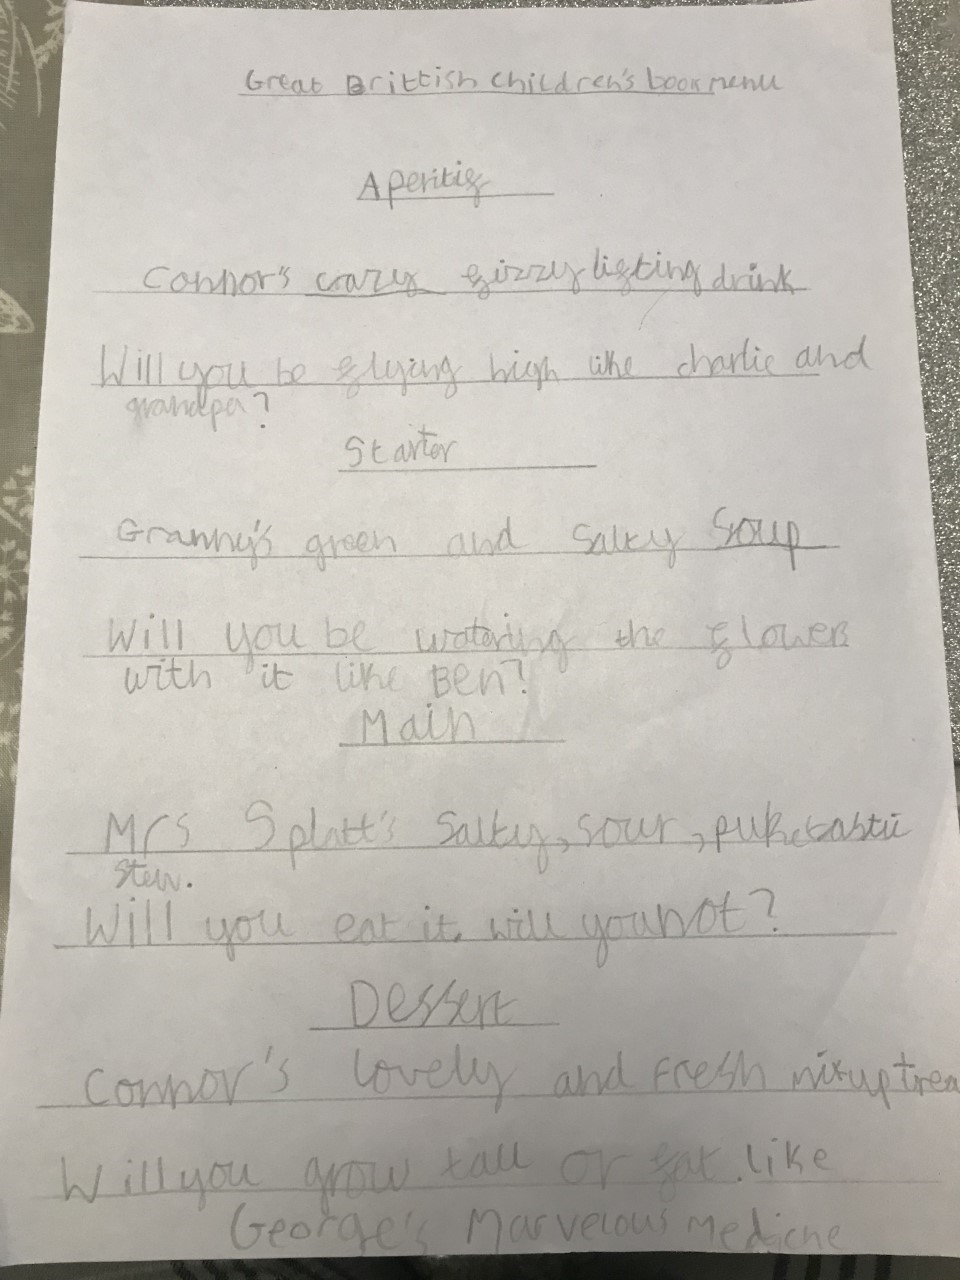 Great Brittish Children's book menu
Aperitif
Connor's crazy fizzy lifting drink
Will you be flying high like charlie and
grandpa?
Starter
Granny's green and Salty Soup
Will you be watering the flowers
with it like Ben?
Main
Mrs Splatt's Salty, sour, puketastic
Stew.
Will you eat it, will you not?
Dessert
Connor's lovely and Fresh mixup trea
Will you grow tall or fat like
George's Marvelous medicine